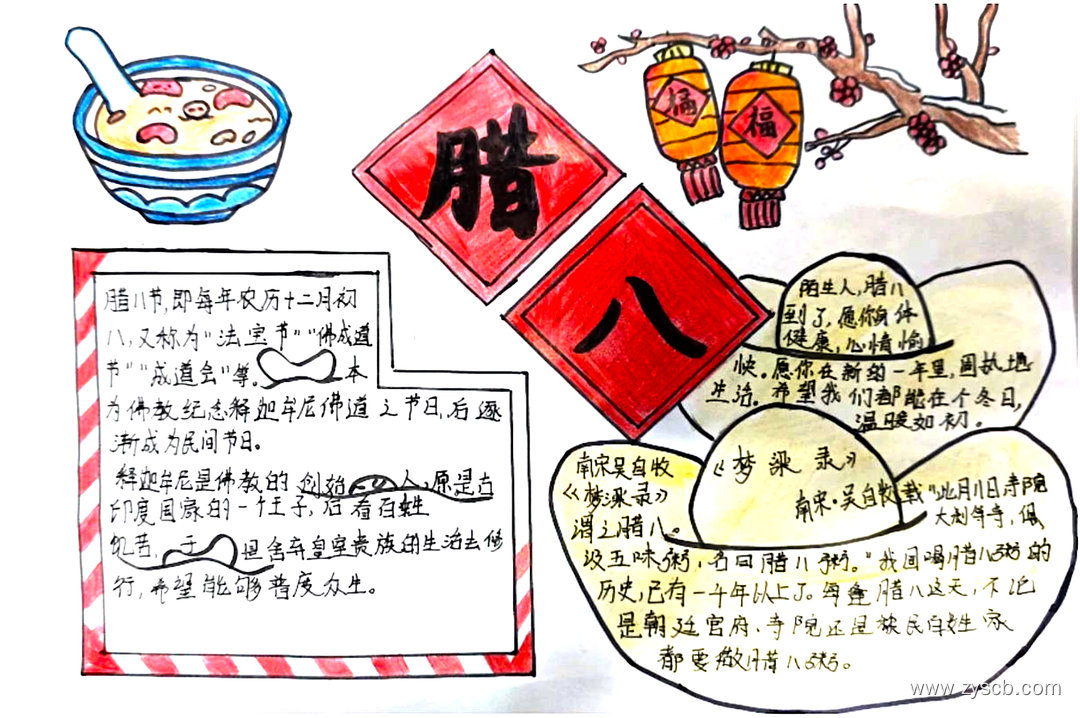 腊
八
福
福
腊八节,即每年农历十二月初
八,又称为“法宝节”“佛成道
节”“成道会”等。本
为佛教纪念释迦牟尼佛道之节日,后逐
渐成为民间节日。
释迦牟尼是佛教的创始人,原是古
印度国家的一个王子,后看百姓
饥苦,于 但舍弃皇室贵族的生活去修
行,希望能够普度众生。
陌生人,腊八
到了,愿你身体
健康,心情愉
快。愿你在新的一年里,固执地
生活。希望我们都能在个冬日,
温暖如初。
《梦粱录》
南宋·吴自牧载
南宋吴自牧
《梦粱录》
谓之腊八。
“此月八日寺院
大刹等寺,俱
设五味粥,名曰腊八粥。”我国喝腊八粥的
历史,已有一千年以上了。每逢腊八这天,不论
是朝廷官府、寺院还是族民百姓家
都要做腊八粥。
www.zyscb.com